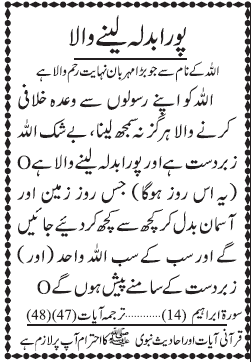 پورا بدلہ لینے والا
اللہ کے نام سے جو بڑا مہربان نہایت رحم والا ہے
اللہ کو اپنے رسولوں سے وعدہ خلافی
کرنے والا ہرگز نہ سمجھ لینا، بے شک اللہ
زبردست ہے اور پورا بدلہ لینے والا ہے O
(یہ اس روز ہوگا) جس روز زمین اور
آسمان بدل کر کچھ سے کچھ کر دیئے جائیں
گے اور سب کے سب اللہ واحد (اور)
زبردست کے سامنے پیش ہوں گے O
سورۃ ابراہیم (14)............ترجمہ آیات (47)(48)
قرآنی آیات اور احادیث نبوی ﷺ کا احترام آپ پر لازم ہے